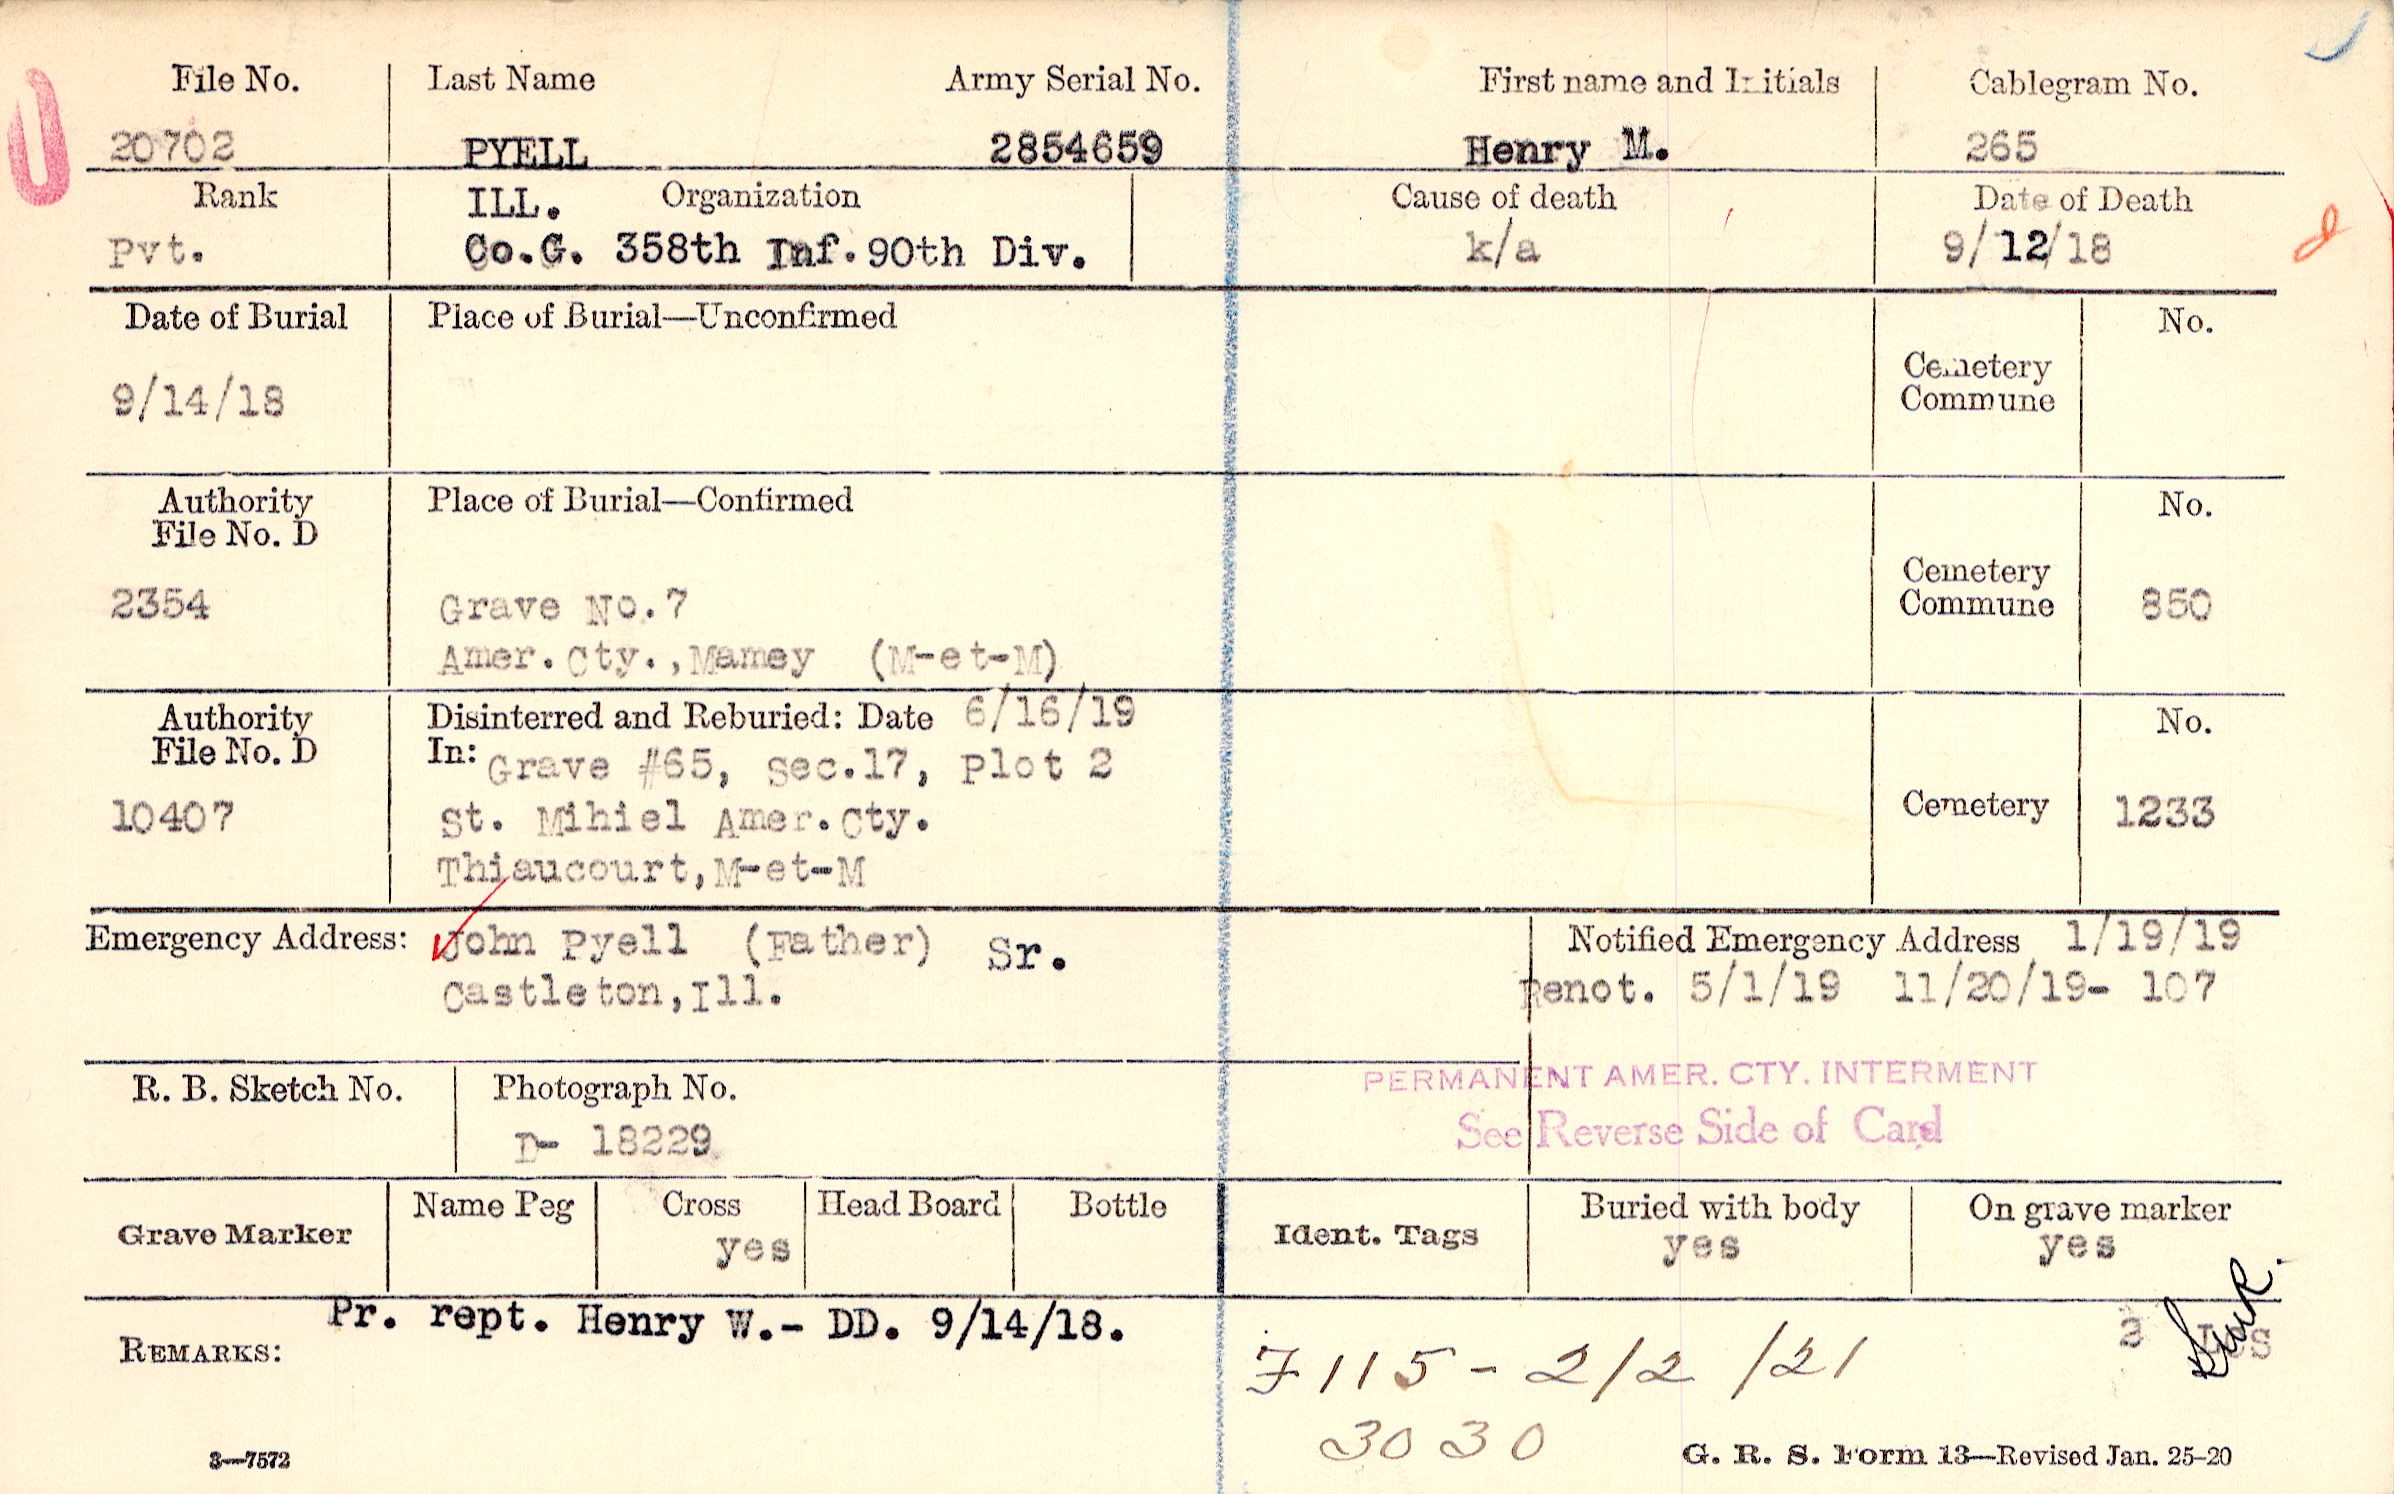 File No. Last Name Army Serial No. First name and Initials Cablegram No.
20702 PYELL 2854659 Henry M. 265
Rank ILL. Organization Cause of death Date of Death
Pvt. Co.G. 358th Inf. 90th Div. k/a 9/12/18
Date of Burial Place of Burial—Unconfirmed No.
Cemetery
Commune
9/14/18
Authority Place of Burial—Confirmed No.
File No. D
Cemetery
2354 Grave No.7 Commune 850
Amer.Cty.,Mamey (M-et-M)
Authority Disinterred and Reburied: Date 6/16/19 No.
File No. D In: Grave #65, Sec.17, Plot 2
10407 St. Mihiel Amer.Cty. Cemetery 1233
Thiaucourt,M-et-M
Emergency Address: John Pyell (Father) Sr. Notified Emergency Address 1/19/19
Castleton,Ill. Renot. 5/1/19 11/20/19- 107
PERMANENT AMER. CTY. INTERMENT
R. B. Sketch No. Photograph No. See Reverse Side of Card
D- 18229
Grave Marker Name Peg Cross Head Board Bottle Ident. Tags Buried with body On grave marker
yes yes yes
Pr. rept. Henry W.- DD. 9/14/18.
REMARKS: F115-2/2/21
3030
3—7572 G. R. S. Form 13—Revised Jan. 25-20